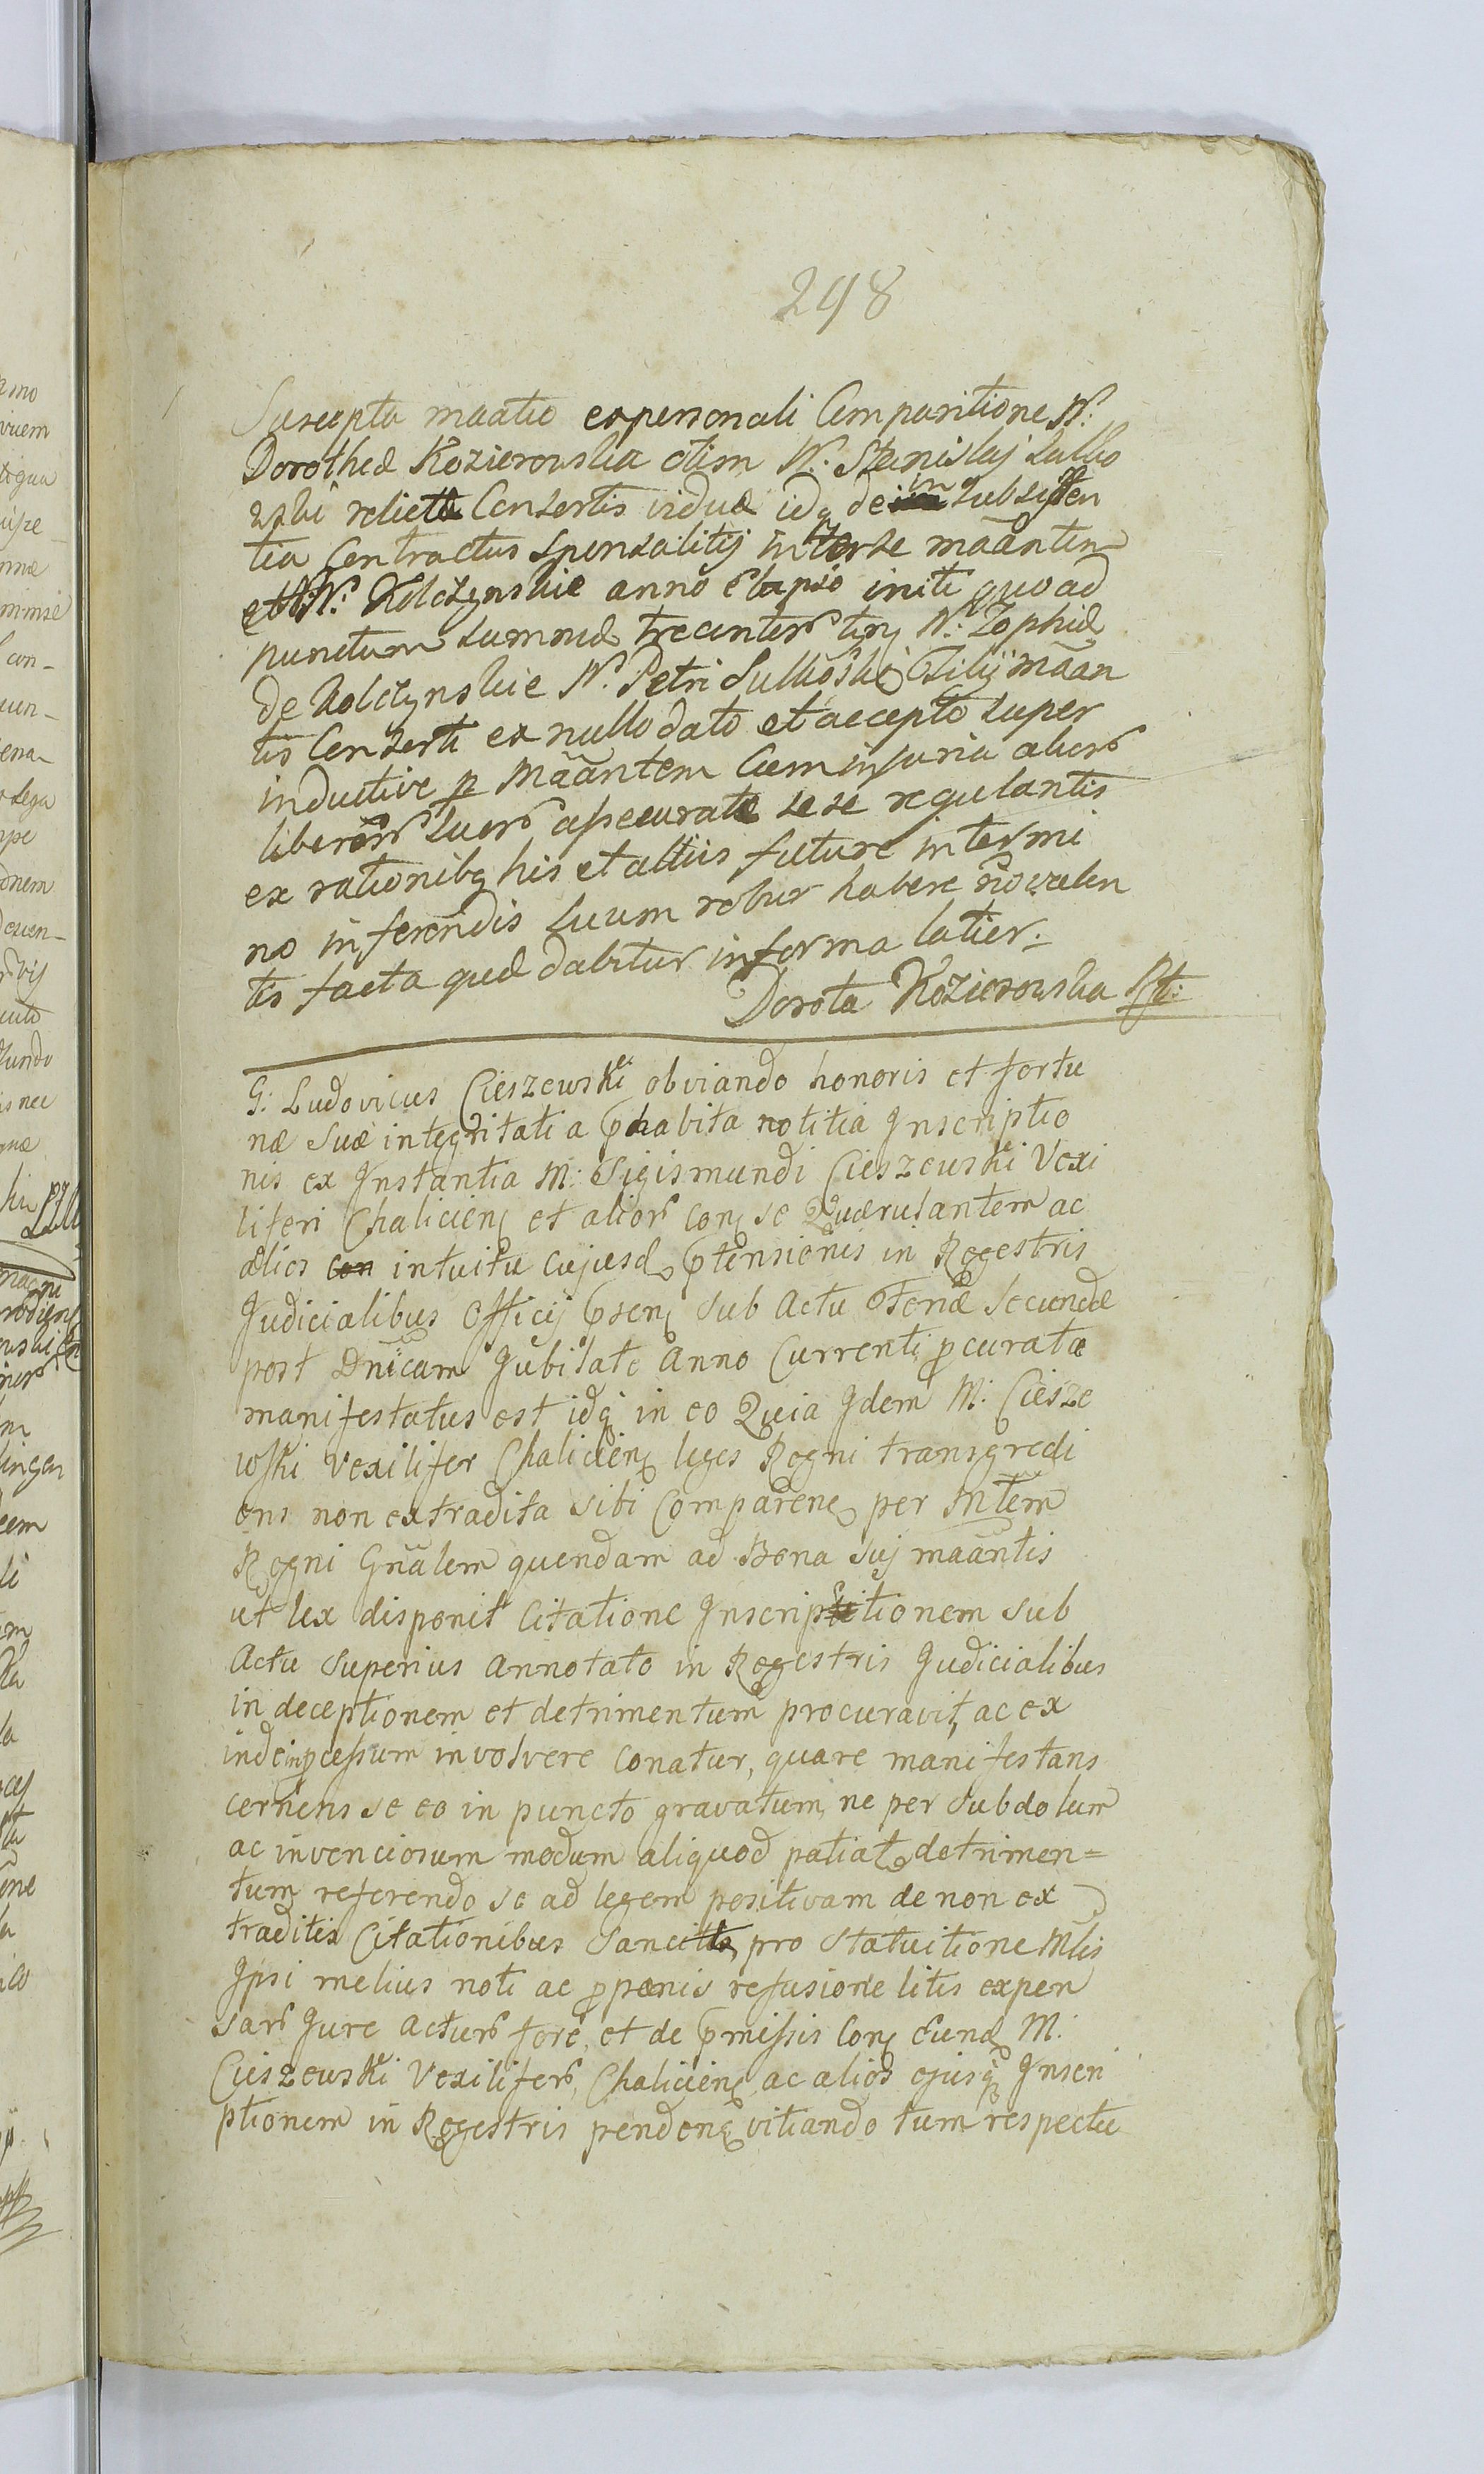 298
Suscepta maãtio ex personali Comparitione N.
Dorotheæ Kozierowska olim N. Stanislaj Sulko
wski relictæ Consortis viduæ idq de in subsisten
tia Contractus sponsalitij inter se maãntem
et N. Kolczynskie anno elapso initi quoad
punctum summæ trecentor tynf N. Zophiæ
de Kolczynskie N. Petri Sulkoski Filij maãn
tis Consorti ex nullo dato et accepto super
inductive p Maãntem Cum injuria alior
liberor suor assecuratæ sese regulantis
ex rationibq his et alliis future in termi
no inferendis suum robur habere nõ valen
tis facta quæ dabitur in forma latior.
Dorota Kozierowska
G: Ludovicus Cieszewski obviando honoris et fortu
næ suæ integritati a p̃habita notitia Inscriptio
nis ex Instantia M: Sigismundi Cieszewski Vexi
liferi Chalicien et alior con se Quærulantem ac
alios con intuitu cujusd p̃tensionis in Regestris
Judicialibus Officij p̃sen sub Actu Feriæ Secundæ
post Dnicam Jubilate Anno Currenti p̱curatæ
manifestatus est idq in eo Quia Idem M: Ciesze
wski Vexilifer Chalicien leges Regni transgredi
ens non extradita sibi Comparen per Mntem
Regni Gñalem quendam ad Bona Suj maãntis
ut lex disponit Citatione Inscriptionem sub
Actu Superius Annotato in Regestris Judicialibus
in deceptionem et detrimentum procuravit, ac ex
inde in p̱cessum involvere conatur, quare manifestans
cernens se eo in puncto gravatum, ne per subdolum
ac invenciosum modum aliquod patiat detrimen=
tum referendo se ad legem positivam de non ex
traditis Citationibus Sancitta, pro Statuitione Mlis
Ipsi melius noti ac p̱ pœnis refusione litis expen
sar Jure Actur fore, et de p̃missis Con Eund M.
Cieszewski Vexilifer, Chalicien ac alios ejusq Inscri
ptionem in Regestris penden vitiando tum respectu